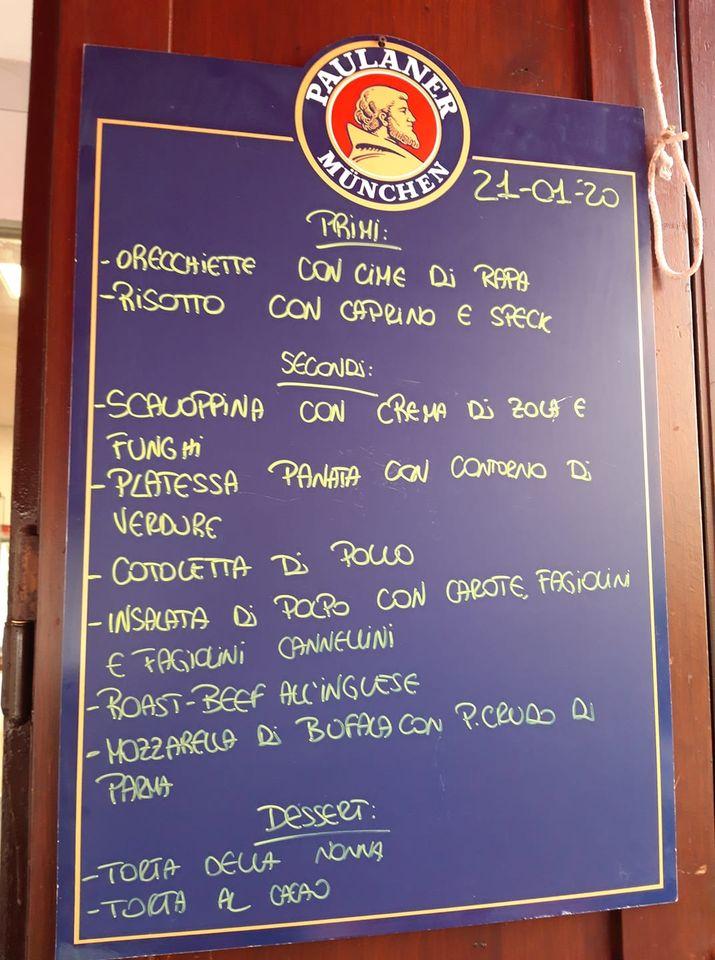 PAULANER
MÜNCHEN
21-01-20
PRIMI:
-ORECCHIETTE CON CIME DI RAPA
-RISOTTO CON CAPRINO E SPECK
SECONDI:
-SCALOPPINA CON CREMA DI ZOLA E
FUNGHI
-PLATESSA PANATA CON CONTORNO DI
VERDURE
- COTOLETTA DI POLLO
-INSALATA DI POLPO CON CAROTE, FAGIOLINI
E FAGIOLINI CANNELLINI
-ROAST-BEEF ALL'INGLESE
-MOZZARELLA DI BUFALA CON P.CRUDO DI
PARMA
DESSERT:
-TORTA DELLA NONNA
-TORTA AL CACAO